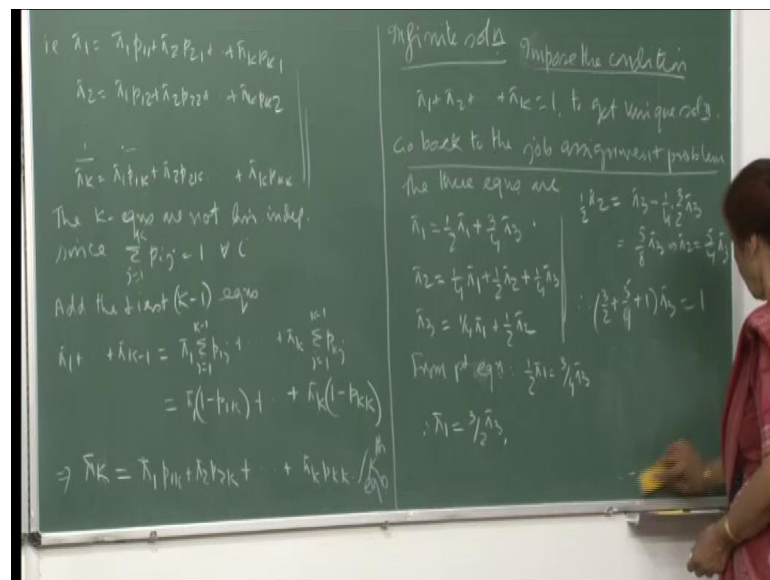 ie π̄1 = π̄1p11+π̄2p21+ ·· +π̄kpk1
π̄2 = π̄1p12+π̄2p22+ ·· +π̄kpk2
π̄k = π̄1p1k+π̄2p2k ·· +π̄kpkk
The k-eqns are not lin indep.
since Σ_{j=1}^{k} pij = 1 ∀ i
Add the first (k-1) eqns
π̄1+ ·· +π̄k-1 = π̄1 Σ_{j=1}^{k-1} p1j + ·· + π̄k Σ_{j=1}^{k-1} pkj
= π̄1(1-p1k) + ·· + π̄k(1-pkk)
⇒ π̄k = π̄1p1k+π̄2p2k+ ·· + π̄kpkk / kth eqn
Infinite soln Impose the condition
π̄1+π̄2+ ·· +π̄k = 1, to get unique soln.
Go back to the job assignment problem
The three eqns are
π̄1 = 1/2 π̄1 + 3/4 π̄3
π̄2 = 1/4 π̄1 + 1/2 π̄2 + 1/4 π̄3
π̄3 = 1/4 π̄1 + 1/2 π̄2
From 1st eqn: 1/2 π̄1 = 3/4 π̄3
∴ π̄1 = 3/2 π̄3,
1/2 π̄2 = π̄3 - 1/4 3/2 π̄3
= 5/8 π̄3 ⇒ π̄2 = 5/4 π̄3
∴ (3/2 + 5/4 + 1) π̄3 = 1